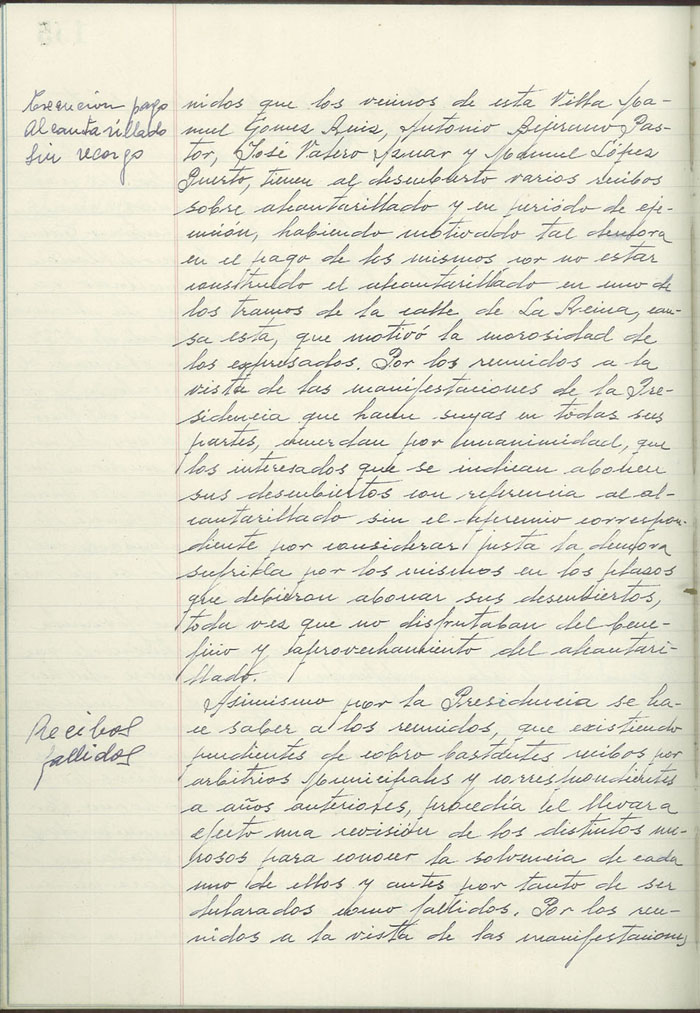 Exención pago
Alcantarillado
Sin recargo
nidos que los vecinos de esta Villa Ma-
nuel Gomez Ruiz, Antonio Bejerano Pas-
tor, José Valero Aznar y Manuel López
Puerto, tienen al descubierto varios recibos
sobre alcantarillado y en periódo de eje-
cución, habiendo motivado tal demora
en el pago de los mismos por no estar
construido el alcantarillado en uno de
los tramos de la calle de La Reina, cau-
sa esta, que motivó la morosidad de
los expresados. Por los reunidos a la
vista de las manifestaciones de la Pre-
sidencia que hacen suyas en todas sus
partes, acuerdan por unanimidad, que
los interesados que se indican abonen
sus descubiertos con referencia al al-
cantarillado sin el apremio correspon-
diente por considerar justa la demora
sufrida por los mismos en los plazos
que debieran abonar sus descubiertos,
toda vez que no disfrutaban del bene-
ficio y aprovechamiento del alcantari-
llado.
Recibos
fallidos
Asimismo por la Presidencia se ha-
ce saber a los reunidos, que existiendo
pendientes de cobro bastantes recibos por
arbitrios Municipales y correspondientes
a años anteriores, procedia el llevar a
efecto una revisión de los distintos mo-
rosos para conocer la solvencia de cada
uno de ellos y antes por tanto de ser
declarados como fallidos. Por los reu-
nidos a la vista de las manifestaciones